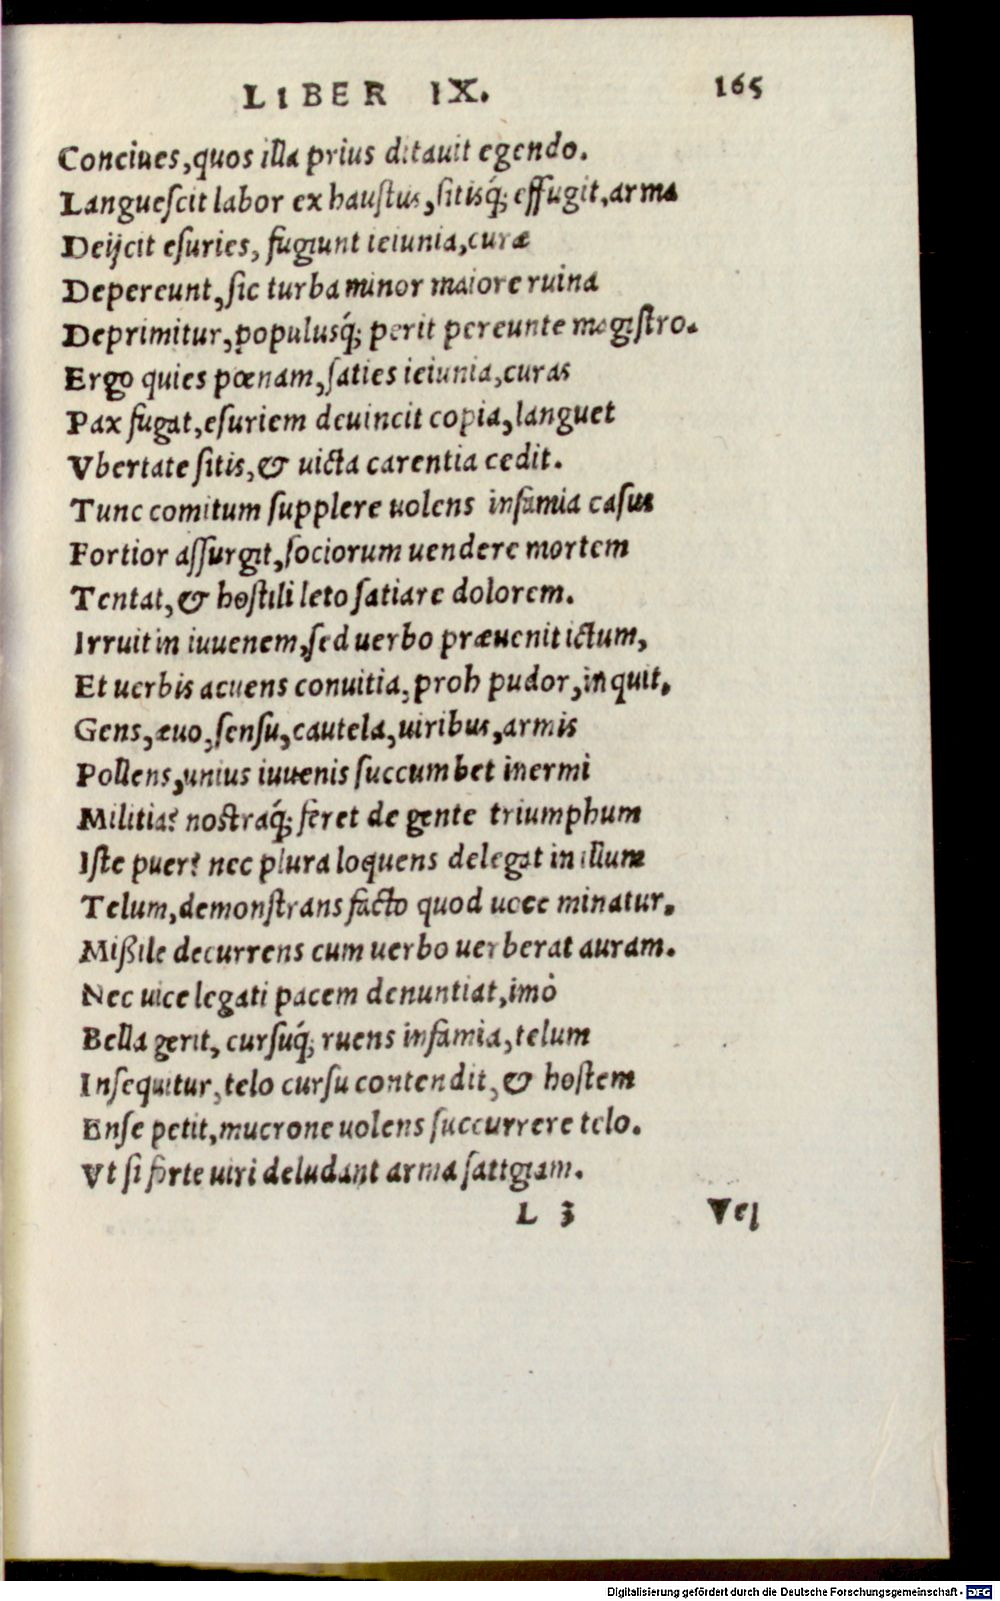 LIBER IX. 165
Conciues, quos illa prius ditauit egendo.
Languescit labor exhaustus, sitisq́; effugit, arma
Deijcit esuries, fugiunt ieiunia, curæ
Depereunt, sic turba minor maiore ruina
Deprimitur, populusq́; perit pereunte magistro.
Ergo quies pœnam, saties ieiunia, curas
Pax fugat, esuriem deuincit copia, languet
Vbertate sitis, & uicta carentia cedit.
Tunc comitum supplere uolens infamia casus
Fortior assurgit, sociorum uendere mortem
Tentat, & hostili leto satiare dolorem.
Irruit in iuuenem, sed uerbo præuenit ictum,
Et uerbis acuens conuitia, proh pudor, inquit,
Gens, æuo, sensu, cautela, uiribus, armis
Pollens, unius iuuenis succumbet inermi
Militia? nostraq́; feret de gente triumphum
Iste puer? nec plura loquens delegat in illum
Telum, demonstrans facto quod uoce minatur.
Mißile decurrens cum uerbo uerberat auram.
Nec uice legati pacem denuntiat, imò
Bella gerit, cursuq́; ruens infamia, telum
Insequitur, telo cursu contendit, & hostem
Ense petit, mucrone uolens succurrere telo.
Vt si forte uiri deludant arma sattgiam.
L 3 Vel
Digitalisierung gefördert durch die Deutsche Forschungsgemeinschaft - DFG